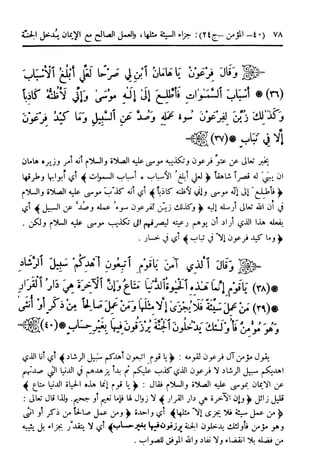 ٧٨ (٤٠ – المؤمن – ج٢٤) : جزاء السيئة مثلها، والعمل الصالح مع الإيمان يُدخل الجنّة
وَقَالَ فِرْعَوْنُ يَا هَامَانُ ابْنِ لِي صَرْحًا لَعَلِّي أَبْلُغُ الْأَسْبَابَ
(٣٦) * أَسْبَابَ السَّمَوَاتِ فَأَطَّلِعَ إِلَى إِلَهِ مُوسَى وَإِنِّي لَأَظُنُّهُ كَاذِبًا
وَكَذَلِكَ زُيِّنَ لِفِرْعَوْنَ سُوءُ عَمَلِهِ وَصُدَّ عَنِ السَّبِيلِ وَمَا كَيْدُ فِرْعَوْنَ
إِلَّا فِي تَبَابٍ * (٣٧)
يخبر تعالى عن عتوّ فرعون وتكذيبه موسى عليه الصلاة والسلام أنه أمر وزيره هامان
ان يبني له قصراً شاهقاً ﴿ لعلي أبلغ الأسباب * أسباب السموات ﴾ أي أبوابها وطرقها
﴿ فأطلع إلى إله موسى وإني لأظنه كاذباً ﴾ أي أنه كذّب موسى عليه الصلاة والسلام
في أن الله تعالى أرسله إليه ﴿ وكذلك زين لفرعون سوء عمله وصدّ عن السبيل ﴾ أي
بفعله هذا الذي أراد أن يوهم رعيته ليصرفهم الى تكذيب موسى عليه السلام ولكن .
﴿ وما كيد فرعون إلا في تباب ﴾ أي في خسار .
وَقَالَ الَّذِي آمَنَ يَاقَوْمِ اتَّبِعُونِ أَهْدِكُمْ سَبِيلَ الرَّشَادِ
(٣٨) * يَاقَوْمِ إِنَّمَا هَذِهِ الْحَيَاةُ الدُّنْيَا مَتَاعٌ وَإِنَّ الْآخِرَةَ هِيَ دَارُ الْقَرَارِ
(٣٩) * مَنْ عَمِلَ سَيِّئَةً فَلَا يُجْزَى إِلَّا مِثْلَهَا وَمَنْ عَمِلَ صَالِحًا مِنْ ذَكَرٍ أَوْ أُنْثَى
وَهُوَ مُؤْمِنٌ فَأُولَئِكَ يَدْخُلُونَ الْجَنَّةَ يُرْزَقُونَ فِيهَا بِغَيْرِ حِسَابٍ * (٤٠)
يقول مؤمن آل فرعون لقومه : ﴿ يا قوم اتبعون أهدكم سبيل الرشاد ﴾ أي أنا الذي
اهديكم سبيل الرشاد لا فرعون الذي كذب عليكم ثم بدأ يزهدهم في الدنيا التي صدتهم
عن الايمان بموسى عليه الصلاة والسلام فقال : ﴿ يا قوم إنما هذه الحياة الدنيا متاع ﴾
قليل زائل ﴿ وإن الآخرة هي دار القرار ﴾ لا زوال لها فإما نعيم أو جحيم. ولذا قال تعالى :
﴿ من عمل سيئة فلا يجزى إلا مثلها ﴾ أي واحدة ﴿ ومن عمل صالحاً من ذكر أو انثى
وهو مؤمن فأولئك يدخلون الجنة يرزقون فيها بغير حساب ﴾ أي لا يتقدّر بجزاء بل يثيبه
من فضله بلا انقضاء ولا نفاد والله الموفق للصواب .